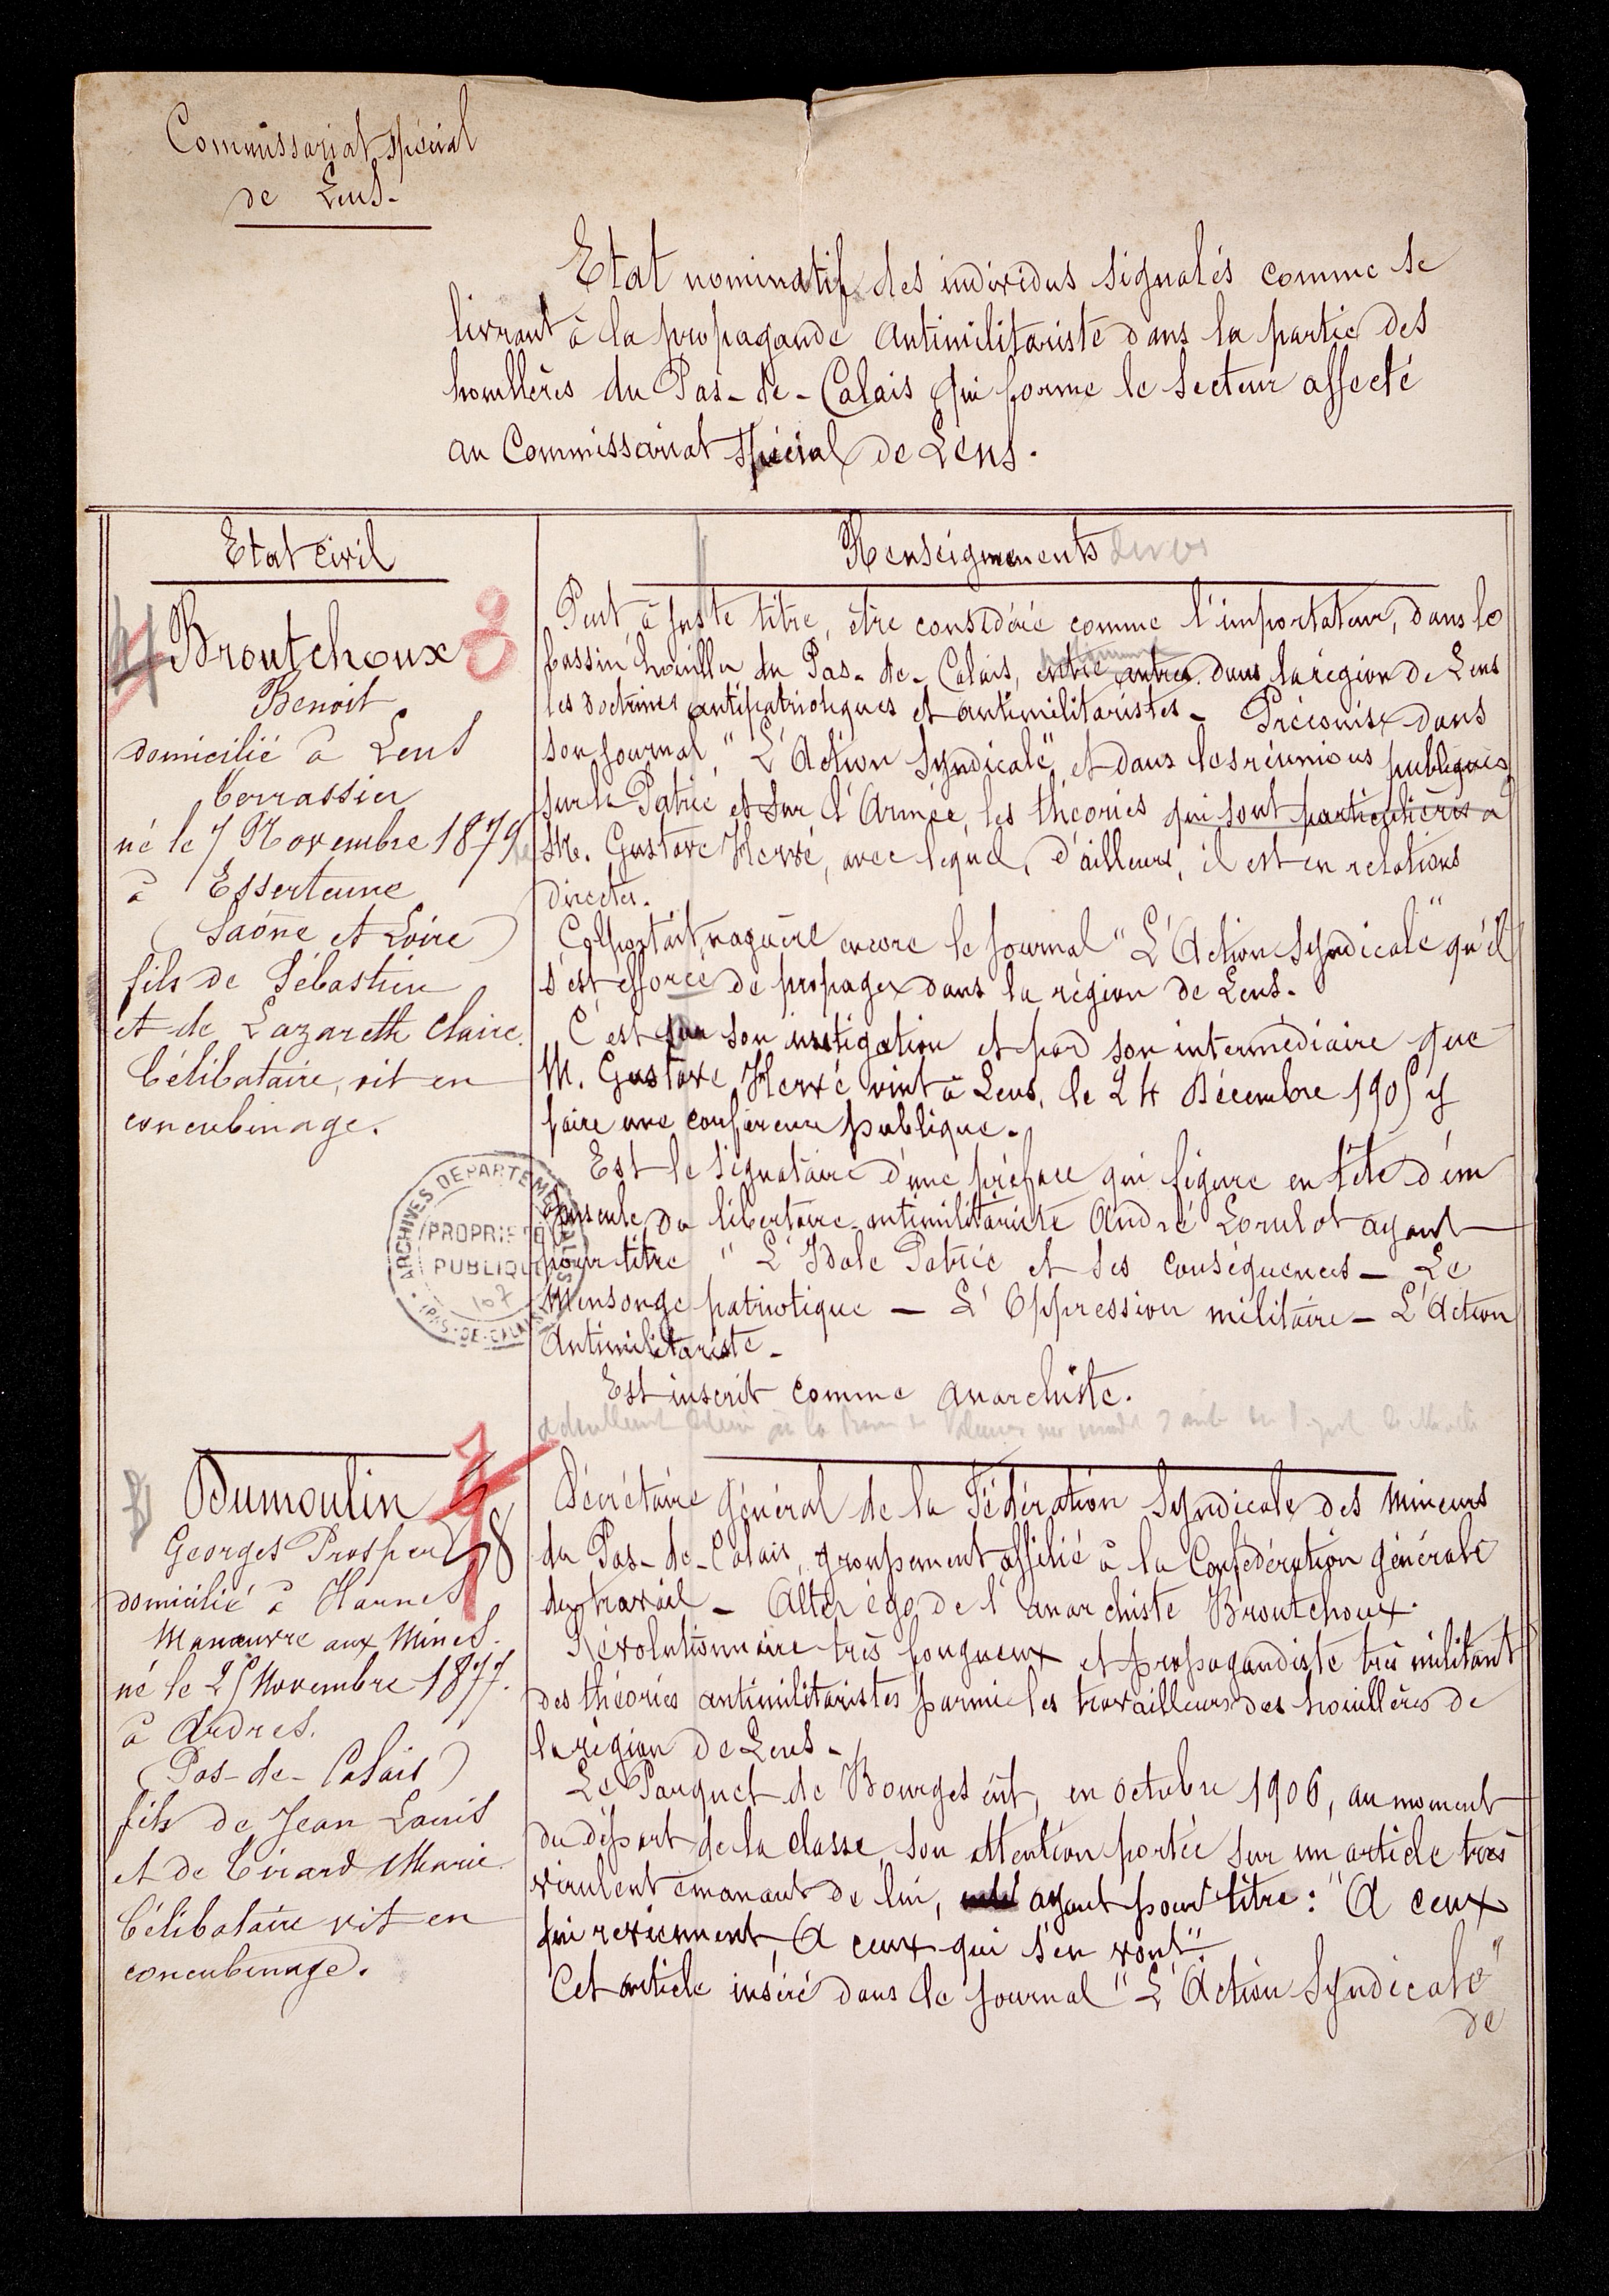 Commissariat spécial
de Lens.
Etat nominatif des individus signalés comme se
livrant à la propagande antimilitariste dans la partie des
houllères du Pas-de-Calais qui forme le secteur affecté
au Commissariat spécial de Lens.
Etat civil
Broutchoux 8
Benoit
domicilié à Lens
terrassier
né le 7 Novembre 1879
à Essertenne
(Saône et Loire)
fils de Sébastien
et de Lazareth Claire.
Célibataire, vit en
concubinage.
ARCHIVES DEPARTEMENTALES
PROPRIETE
PUBLIQUE
107
(PAS-DE-CALAIS)
Dumoulin
Georges Prosper 8
domicilié à Harnes
Manœuvre aux Mines.
né le 25 Novembre 1877.
à Ardres.
(Pas-de-Calais)
fils de Jean Louis
et de Evrard Marie.
Célibataire vit en
concubinage.
Renseignements divers
Peut, à juste titre, être considéré comme l'importateur, dans le
bassin houiller du Pas-de-Calais, entre autres dans la région de Lens
les doctrines antipatriotiques et antimilitaristes - Préconise dans
son journal, "L'Action Syndicale" et dans les réunions publiques
sur la Patrie et sur l'Armée, les théories qui sont particulières à
M. Gustave Hervé, avec lequel, d'ailleurs, il est en relations
directes.
Colportait naguère encore le journal "L'Action Syndicale" qu'il
s'est efforcé de propager dans la région de Lens.
C'est sur son instigation et par son intermédiaire que
M. Gustave Hervé vint à Lens, le 24 Décembre 1905 y
faire une conférence publique.
Est le signataire d'une préface qui figure en tête d'un
opuscule du libertaire-antimilitariste André Lorulot ayant
pour titre "L'Idole Patrie et ses conséquences - Le
Mensonge patriotique - L'Oppression militaire - L'Action
Antimilitariste -
Est inscrit comme anarchiste.
Sécrétaire Général de la Fédération Syndicale des Mineurs
du Pas-de-Calais, groupement affilié à la Confédération générale
du travail - Alter égo de l'anarchiste Broutchoux.
Révolutionnaire très fougueux et propagandiste très militant
des théories antimilitaristes parmi les travailleurs des houillères de
la région de Lens -
Le Parquet de Bourges eut, en octobre 1906, au moment
du départ de la classe, son attention portée sur un article très
virulent émanant de lui, ayant pour titre : "A ceux
qui reviennent, A ceux qui s'en vont".
Cet article inséré dans le journal "L'Action Syndicale"
de